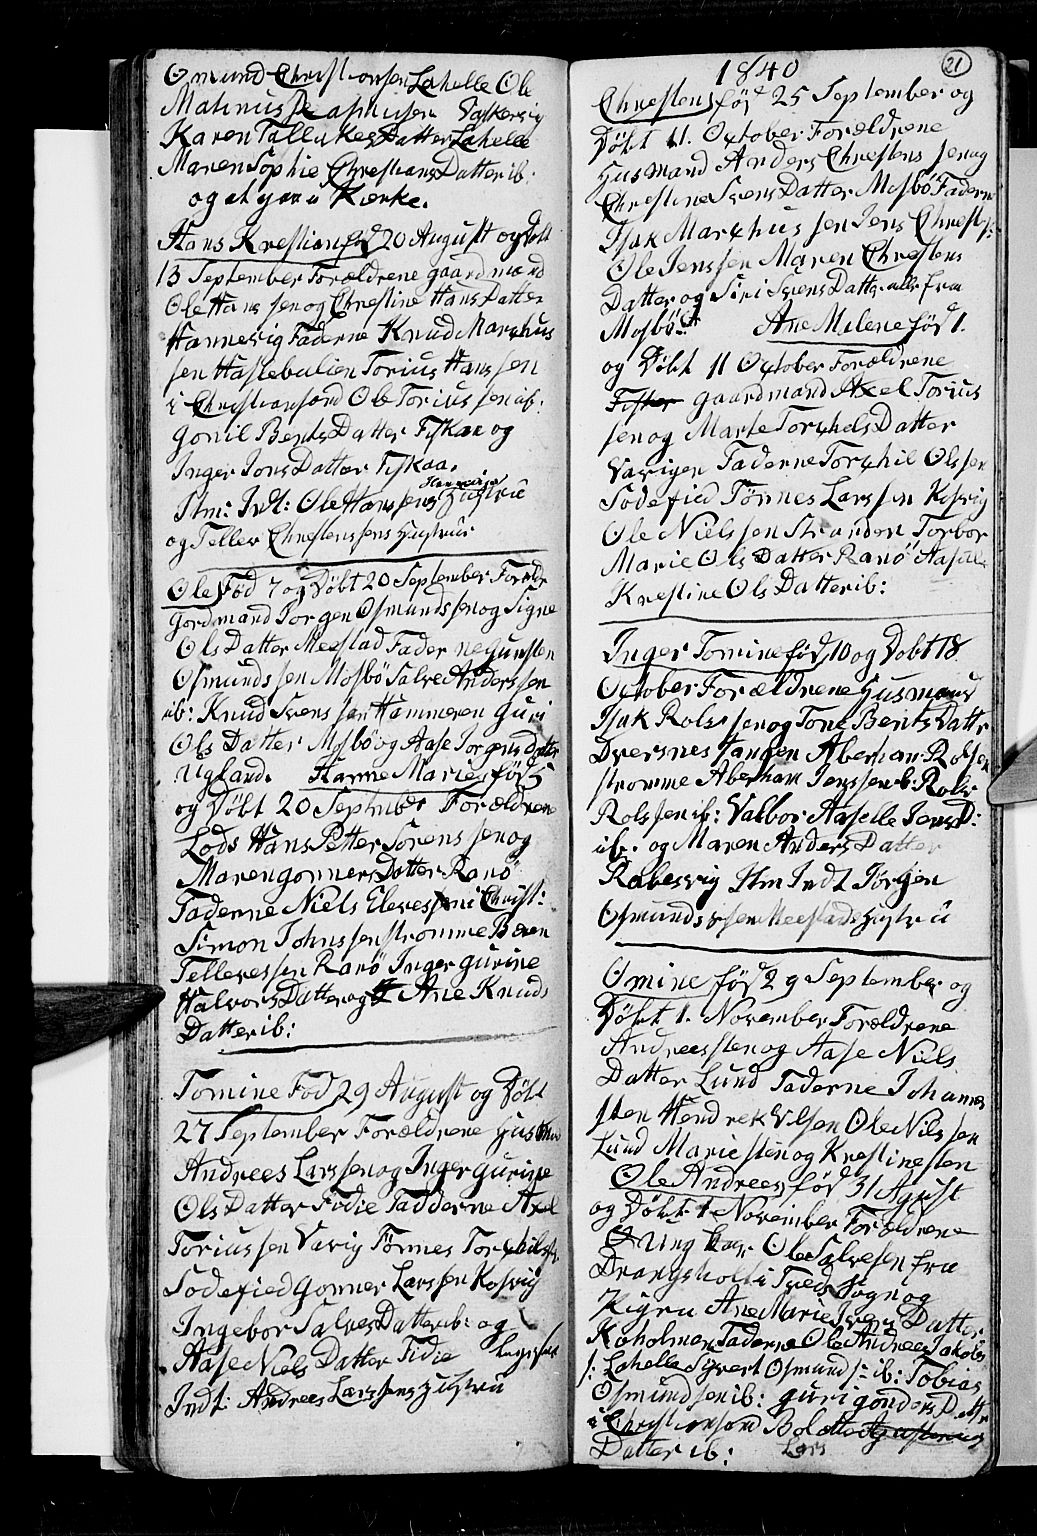 Omund Christiansen Lahelle Ole
Matinus Rasmusen Valkesvig
Karen Tallakes Datter Lahelle
Maren Sophie Christians Datter ib:
og at gaa i Kærke.
Hans Krestian fød 20 August og Døbt
13 September Forældrene gaardmand
Ole Hans sen og Chrestine Hans Datter
Hannevig Faderne Knud Marchus
sen Haslebalien Torius Hans sen
i Christiansand Ole Torius sen ib:
Gonil Bents Datter Fiskaa og
Inger Jons Datter Fiskaa.
Hannevigs
Itm: Indt: Ole Hans sens Hustrue
og Tellev Chrestenssens Hustrue
Ole Fød 7 og Døbt 20 September Foreldr
Gordmand Jorgen Osmunds sen og Signe
Ols Datter Meestad Faderne Gunsten
Osmunds sen Mosbø Salve Anders sen
ib: Knud Svens sen Hammeren Guri
Ols Datter Mosbø og Aase Jorgens Datter
Ugland. Hanne Marie fød 5
og Døbt 20 September Forældrene
Lods Hans Petter Sorens sen og
Maren Gonners Datter Ranø
Faderne Niels Eleves sen i Christ:
Simon Johns sen Strømme Beren
Telleves sen Ranø Inger Gurine
Halvors Datter og Ane Knuds
Datter ib:
Tomine Fød 29 August og Døbt
27 September Forældrene Husmand
Andrees Lars sen og Inger Gurine
Ols Datter Fidie Fadderne Axel
Torius sen Varig Tørnes Torchils
Sodefied Gonner Lars sen Kosvig
Ingebor Salves Datter ib: og
Aase Niels Datter Fidie
Indt: Andrees Larssens Hustru
21
1840
Chrestens fød 25 September og
Døbt 11. October Forældrene
Husmand Anders Chrestens sen og
Chrestine Svens Datter Mosbø Faderne
Isak Marchus sen Jens Chrests:
Ole Jens sen Maren Chrestens
Datter og Siri Svens Datter alle fra
Mosbø. Ane Milene fød 1.
og Døbt 11 October Forældrene
gaardmand Axel Torius
sen og Marte Torchels Datter
Varigen Faderne Torchil Olssen
Sodefied Tørnes Lars sen Kosvig
Ole Niels sen Stranden Torbor
Marie Ols Datter Ranø Aaselle
Krestine Ols Datter ib:
Inger Tomine fød 10 og Døbt 18
October Forældrene Husmand
Isak Rols sen og Tone Bents Datter
Dversnes tangen Abersam Rolsen
Strømme Aberham Jens sen ib: Rols
Rols sen ib: Valbor Aaselle Jens D:
ib. og Maren Anders Datter
Rabesvig Itm Indt Jørgen
Osmunds sen Meestads Hustru
Omine fød 29 September og
Døbt 1. November Forældrene
Andrees sten og Aase Niels
Datter Lund Faderne Johannes
sten Hendrek Olsen Ole Nils sen
Lund Marie sten og Krestine sten
Ole Andrees fød 31 Agust
og Døbt 1 November Forældrene
Ung Kar: Ole Salvesen fra
Drangsholt i Tveds Sogn og
Pigen Ane Marie Ivers Datter
Koholmen Faderne Ole Andrees Jakobs
s: Lahelle Sivert Osmunds: ib: Tobias
Osmunds sen ib: Guri Gonders Datter
i Christiansand Bolette
Datter ib: Lars